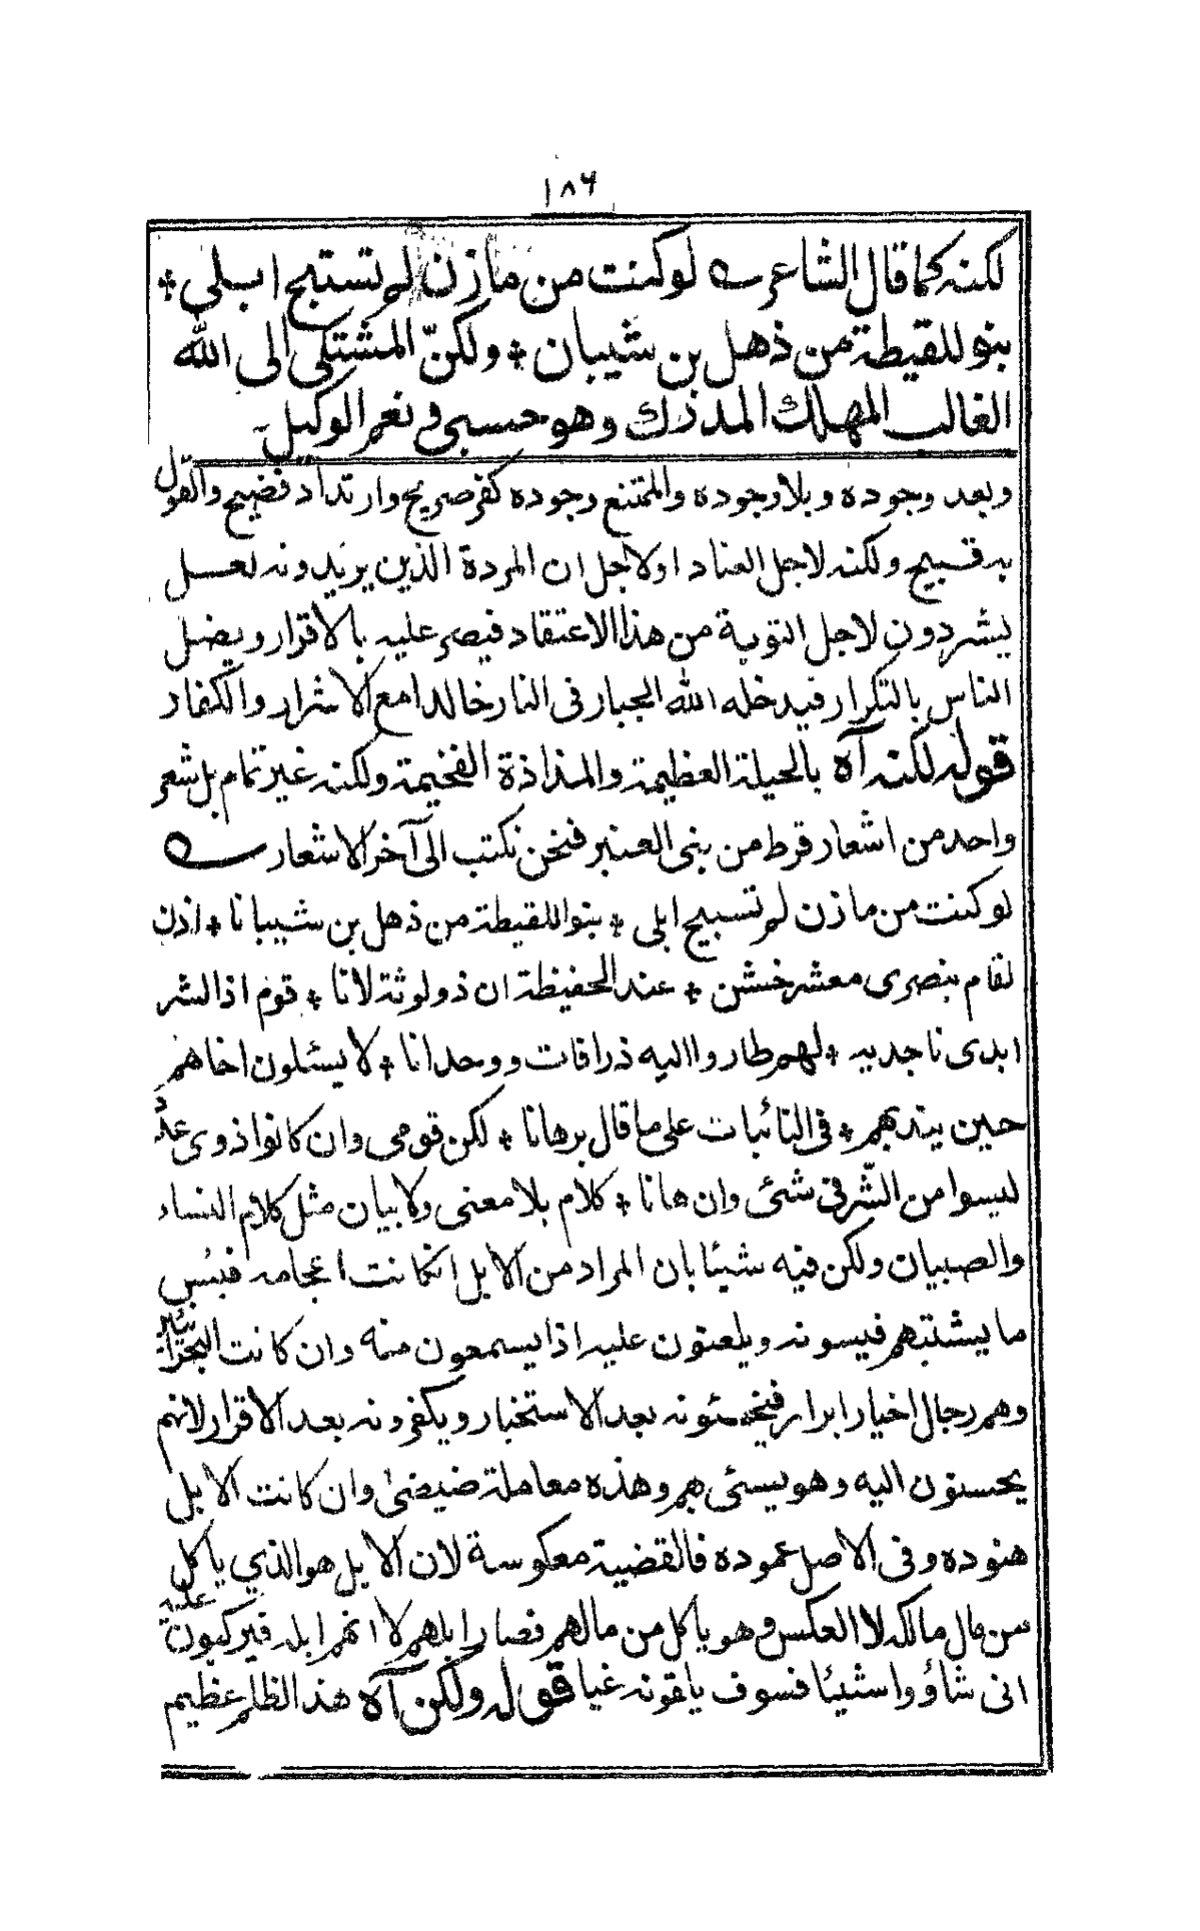 ١٨٦
لكنه كما قال الشاعر لو كنت من مازن لم تستبح ابلي *
بنو للقيطة من ذهل بن شيبان * ولكنّ المشتكى الى الله
الغالب المهلك المدرك وهو حسبي ونعم الوكيل۔
وبعد وجوده وبلا وجوده والممتنع وجوده كفر صريح وارتداد فضيح والقول
به قبيح ولكنه لاجل العناد او لاجل ان المردة الذين يريدونه لعسل
يشردون لاجل التوبة من هذا الاعتقاد فيصر عليه بالاقرار ويضل
الناس بالتكرار فيدخله الله الجبار فى النار خالدا مع الاشرار والكفار
قوله لكنه آه بالحيلة العظيمة والمذاذة الفخيمة ولكنه غير تمام بل شعر
واحد من اشعار قرط من بنى العنبر فنحن نكتب الى آخر الاشعار
لو كنت من مازن لم تسبح ابلى * بنو اللقيطة من ذهل بن شيبانا * اذن
لقام بنصرى معشر خشن * عند الحفيظة ان ذو لوثة لانا * قوم اذا لشر
ابدى ناجديه * لهم طاروا اليه ذرافات ووحدانا * لا يسئلون اخاهم
حين يندبهم * فى النائبات على ما قال برهانا * لكن قومى وان كانوا ذوى عدد
ليسوا من الشّر فى شئ وان هانا * كلام بلا معنى ولا بيان مثل كلام النساء
والصبيان ولكن فيه شيئا بان المراد من الابل انكانت اعجامه فبئس
ما يشتبهم فيسونه ويلعنون عليه اذا يسمعون منه وان كانت البحزانيين
وهم رجال اخيار ابرار فيخسئونه بعد الاستخبار ويكفرونه بعد الاقرار لانهم
يحسنون اليه وهو يسئى بهم وهذه معاملة ضيضىٰ وان كانت الابل
هنوده وفى الاصل عموده فالقضية معكوسة لان الابل هو الذي ياكل
من مال مالكه لا العكس وهو ياكل من مالهم فصار ابلهم لا انهم ابله فيركبون عليه
انى شاؤوا شيئا فسوف يلقونه غيا قوله ولكن آه هذا لظلم عظيم